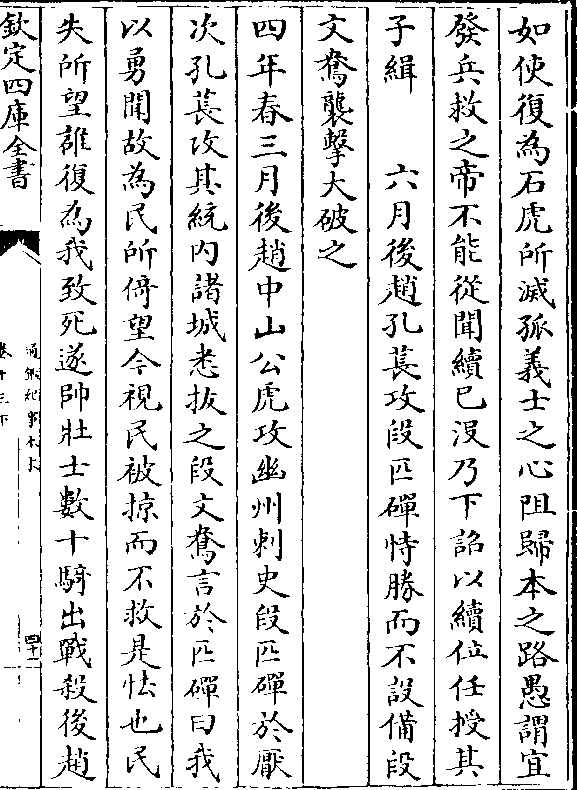 如使復為石虎所滅孤義士之心阻歸本之路愚謂宜
發兵救之帝不能從聞續已没乃下詔以續位任授其
子緝　　六月後趙孔萇攻段匹磾恃勝而不設備段
文鴦襲擊大破之
四年春三月後趙中山公虎攻幽州刺史段匹磾於厭
次孔萇攻其統内諸城悉拔之段文鴦言於匹磾曰我
以勇聞故為民所倚望今視民被掠而不救是怯也民
失所望誰復為我致死遂帥壯士數十騎出戰殺後趙
欽定四庫全書
通鑑紀事本末
卷十三下
四十二